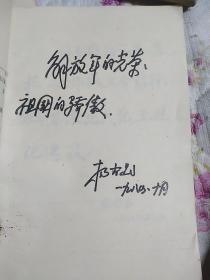 解放军的光荣、
祖国的骄傲.
一九八四.十月